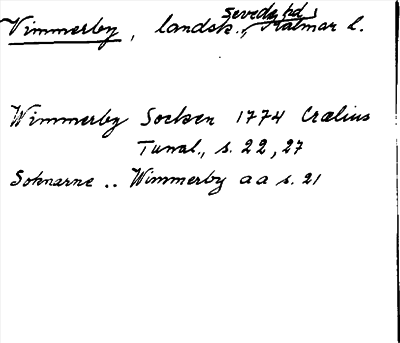 Vimmerby, landsk., Sevede hd, Kalmar l.
Wimmerby Socken 1774 Crælius
Tunal., s. 22, 27
Soknarne .. Wimmerby aa s. 21